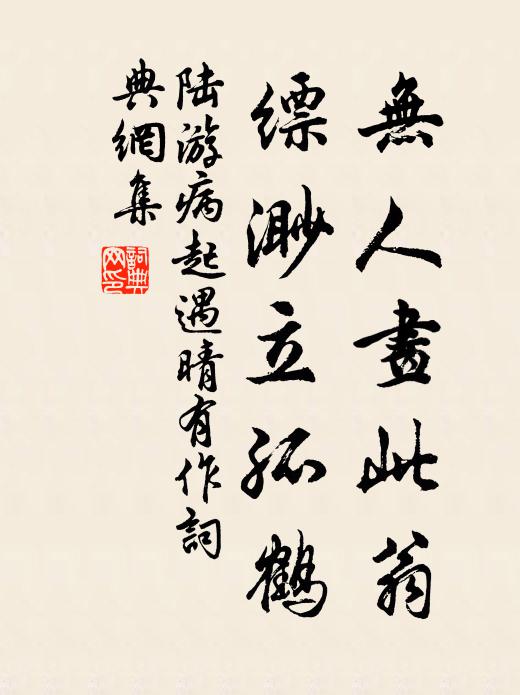 無人畫此翁
縹渺立孤鶴
陆游病起遇晴有作詞
典網集
詞典
网印